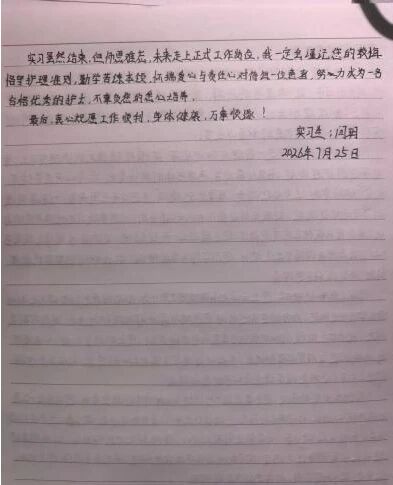 实习虽然结束,但师恩难忘,未来走上正式工作岗位,我一定会谨记您的教诲
恪守护理准则,勤学苦练本领,怀揣爱心与责任心对待每一位患者,努力成为一名
合格优秀的护士,不辜负您的悉心培养。
最后,衷心祝愿工作顺利,身体健康,万事顺遂!
实习生:闫玥
2026年7月25日